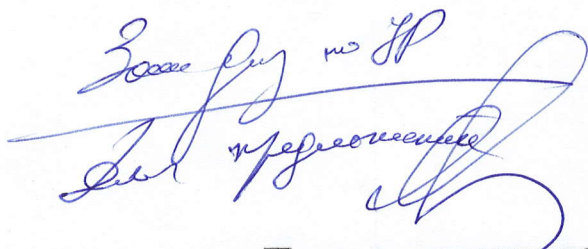 Зам дир по УР
Для предложения